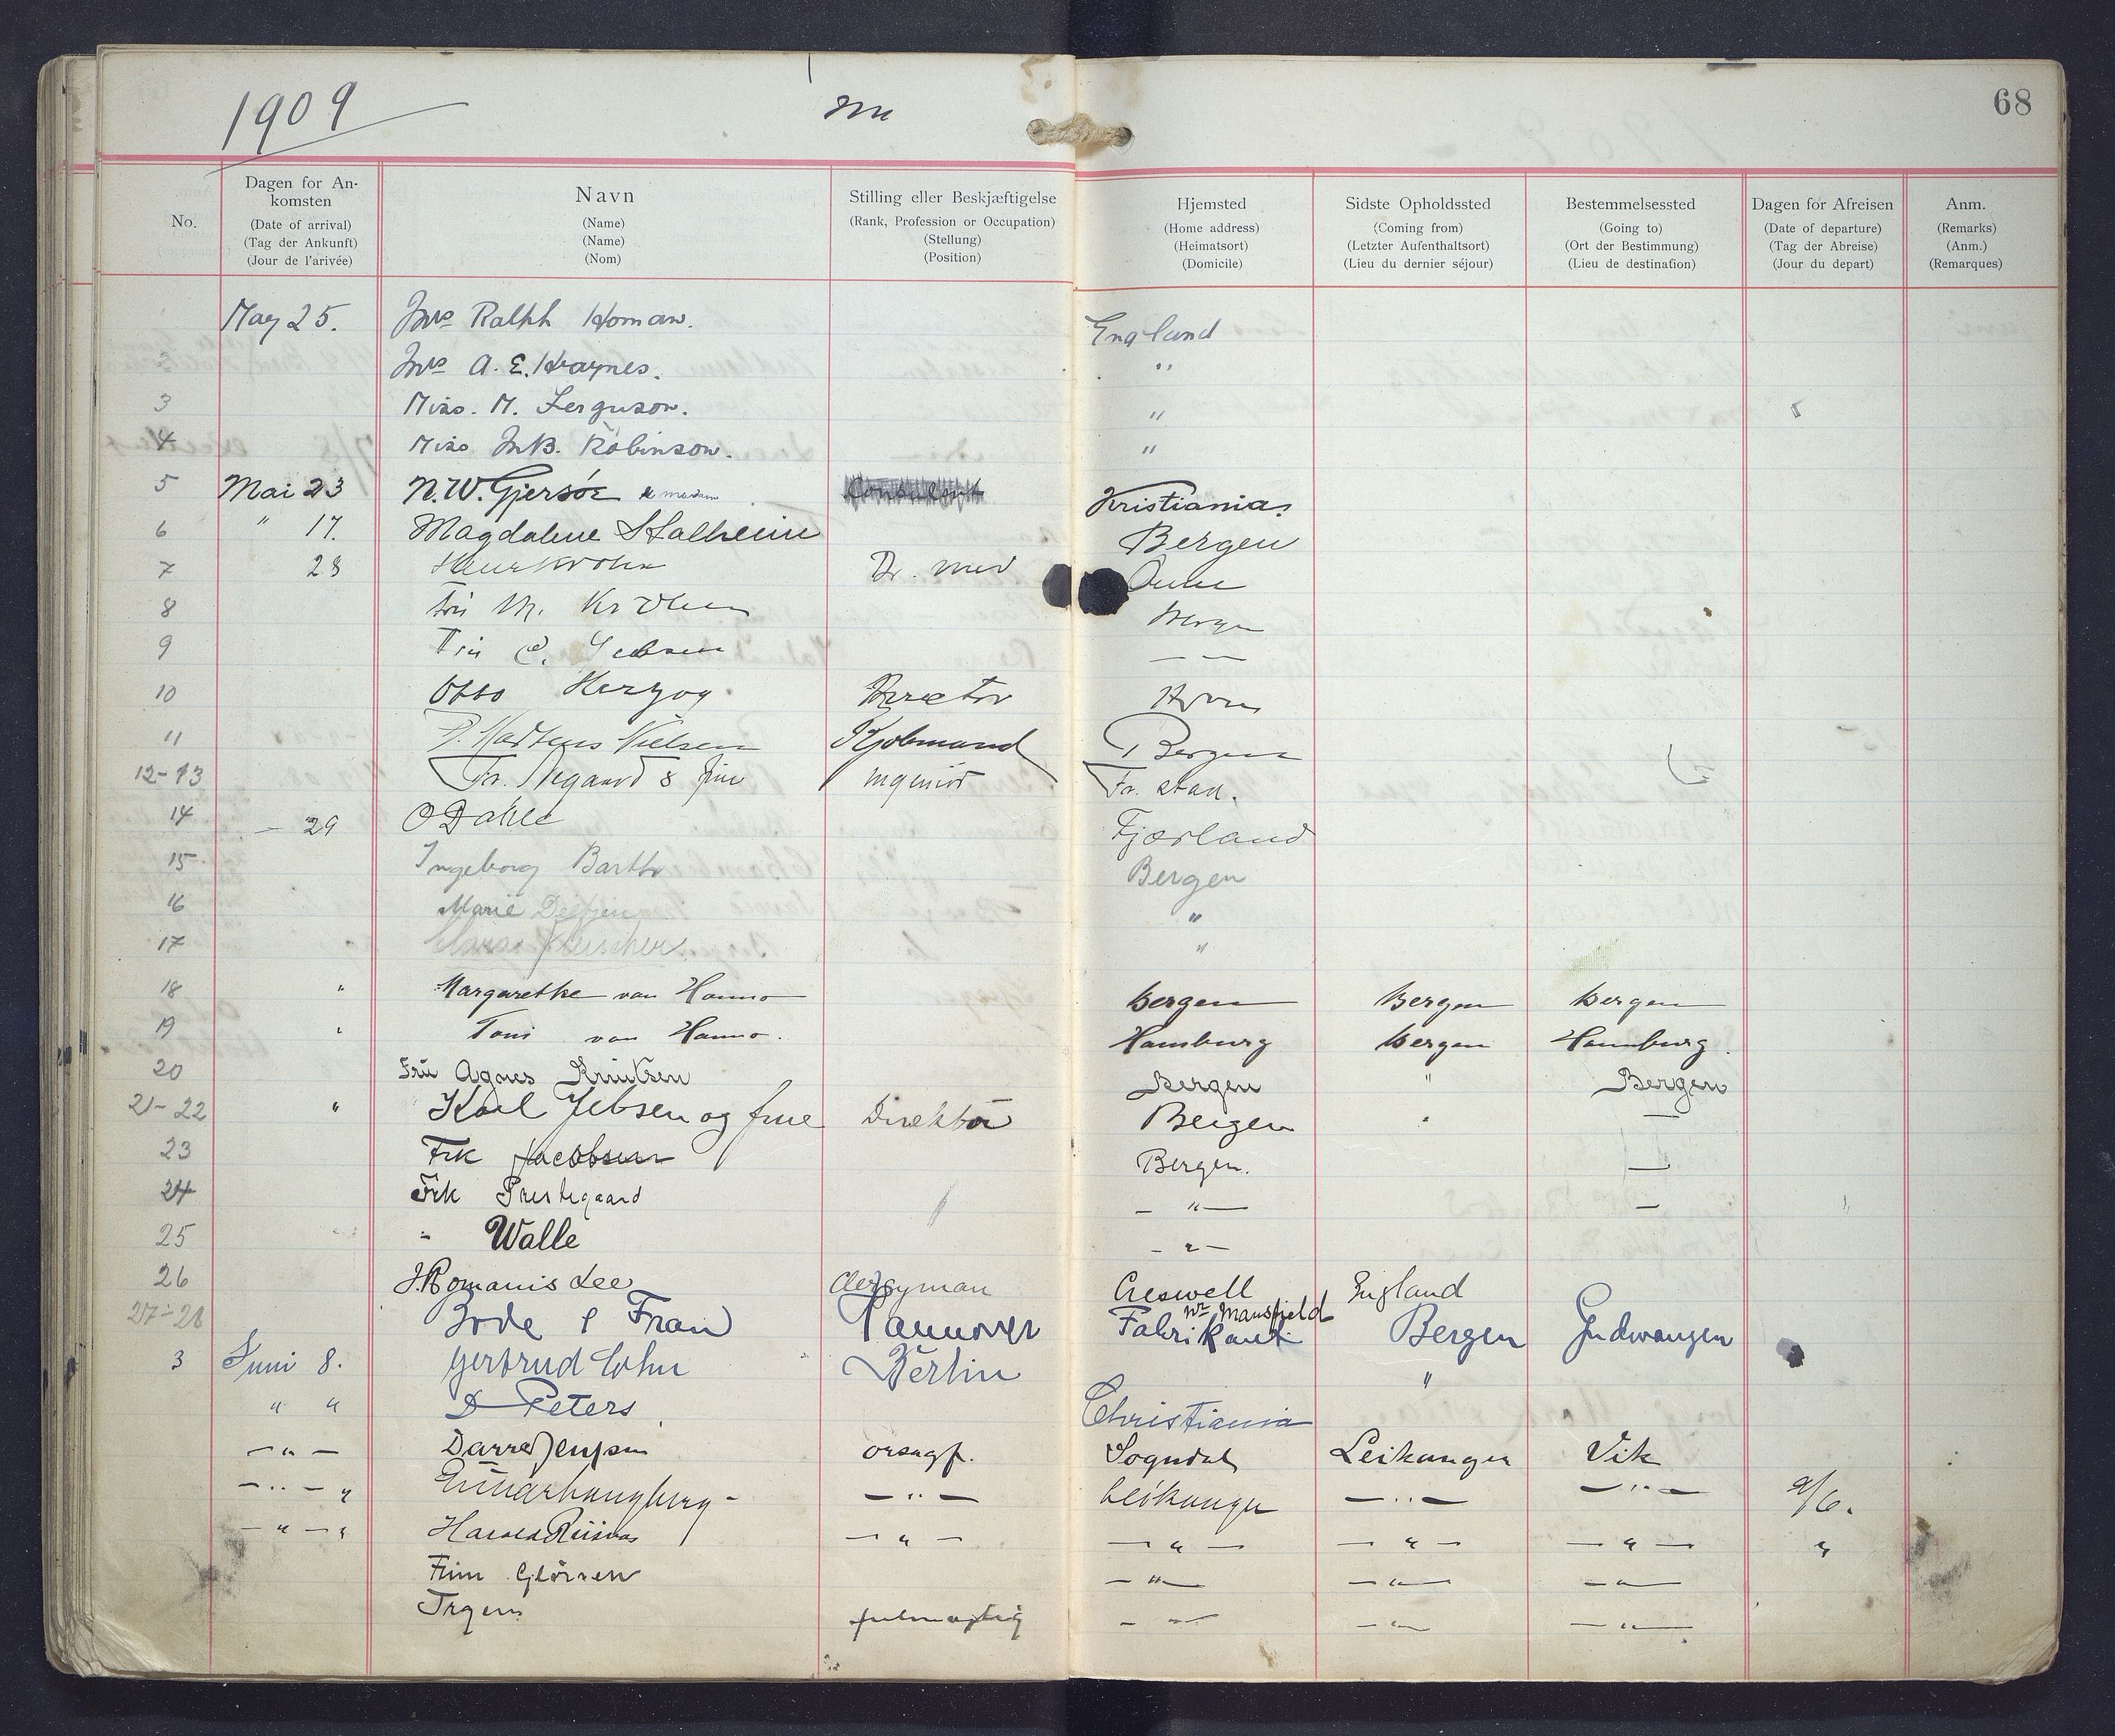 1909
68
No.
Dagen for An-
komsten
(Date of arrival)
(Tag der Ankunft)
(Jour de l'arivée)
Navn
(Name)
(Name)
(Nom)
Stilling eller Beskjæftigelse
(Rank, Profession or Occupation)
(Stellung)
(Position)
Hjemsted
(Home address)
(Heimatsort)
(Domicile)
Sidste Opholdssted
(Coming from)
(Letzter Aufenthaltsort)
(Lieu du dernier séjour)
Bestemmelsessted
(Going to)
(Ort der Bestimmung)
(Lieu de destination)
Dagen for Afreisen
(Date of departure)
(Tag der Abreise)
(Jour du depart)
Anm.
(Remarks)
(Anm.)
(Remarques)
May 25. Mrs Ralph Homan. England
Mrs A. E. Haynes. "
3 Miss. M. Ferguson. "
4 Miss M.B. Robinson. "
5 Mai 23 N.W. Gjersøe & madam Kristiania
6 " 17. Magdalene Stalheim Bergen
7 28 Dr. med
8 Fru M. Krohn Bergen
9 Fru C. Jebsen — —
10 Otto Herzog Direktør
11 P. Martens Nielsen Kjøbmand Bergen
12-13 Fr. Aegaard & frue ingeniør Fr. stad.
14 — 29 O Dahle Fjærland
15 Ingeborg Barth Bergen
16 Marie "
17 Clara Fleischer "
18 " Margarethe von Hanno Bergen Bergen Bergen
19 " Toni von Hanno. Hamburg Bergen Hamburg.
20 Fru Agnes Knutsen Bergen " Bergen
21-22 " Karl Jebsen og frue Direktør Bergen " —
23 Frk Jacobsen Bergen. —
24 Frk Prestegaard - " — —
25 " Walle - " -
26 J. Romanis Lee Clergyman Creswell England
nr Mansfield
27-28 Bode & Frau Hannover Fabrikant Bergen Gudwangen
3 Juni 8. Gertrud Cohn Berlin "
" " D Peters Christiania
— " — orsagf. Sogndal Leikanger Vik
— " — " — " — Leikanger — " — — " — 9/6.
— " — " Harald — " — — " — — " — — " — "
Finn — " — — " — — " —
fuldmægtig — " — — " — — " —